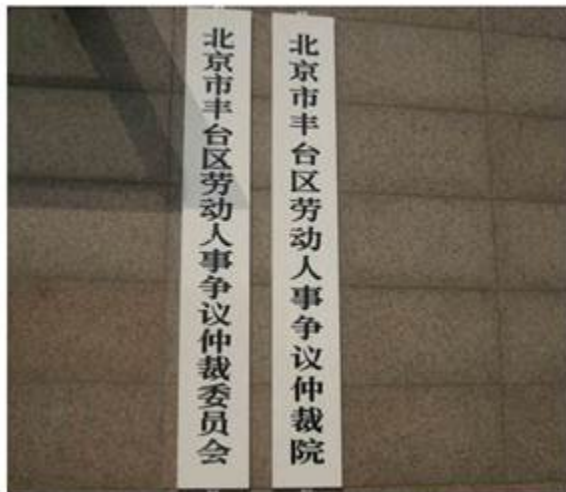 北京市丰台区劳动人事争议仲裁委员会
北京市丰台区劳动人事争议仲裁院